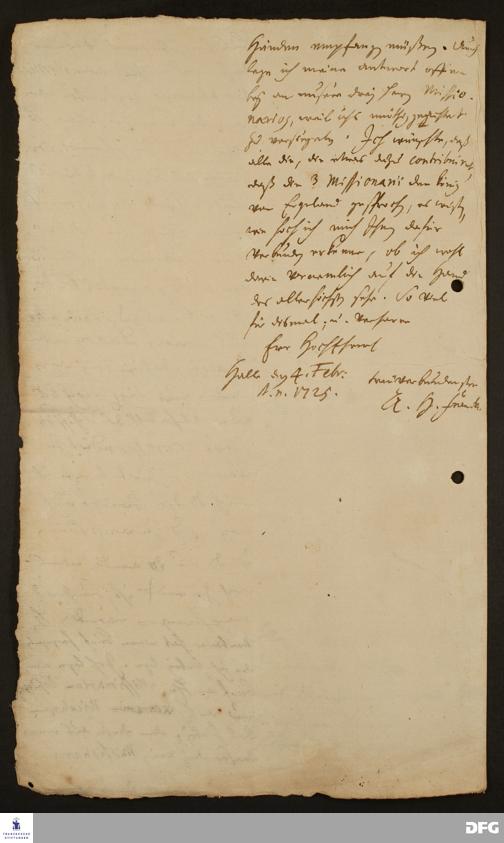 Händen empfangen müßen. Auch
lege ich meine antwort offen
bey an unsere drey Herrn Missio-
narios, weil ichs nicht
zu versiegeln. Ich wünschte, daß
alle die, die etwas dazu contribuiret,
daß die 3 Missionarii den König
von Engeland gesprochen, es wißen,
wie hoch ich mich Ihnen dafür
verbunden erkenne, ob ich wohl
darin vornemlich auf die Hand
des allerhöchsten sehe. So viel
für dismal; u. verharre
Ewr HochEhrw
Halle den 4. Febr.
st. n. 1725.
treuverbundenster
A. H. Franck.
FRANCKESCHE STIFTUNGEN
DFG